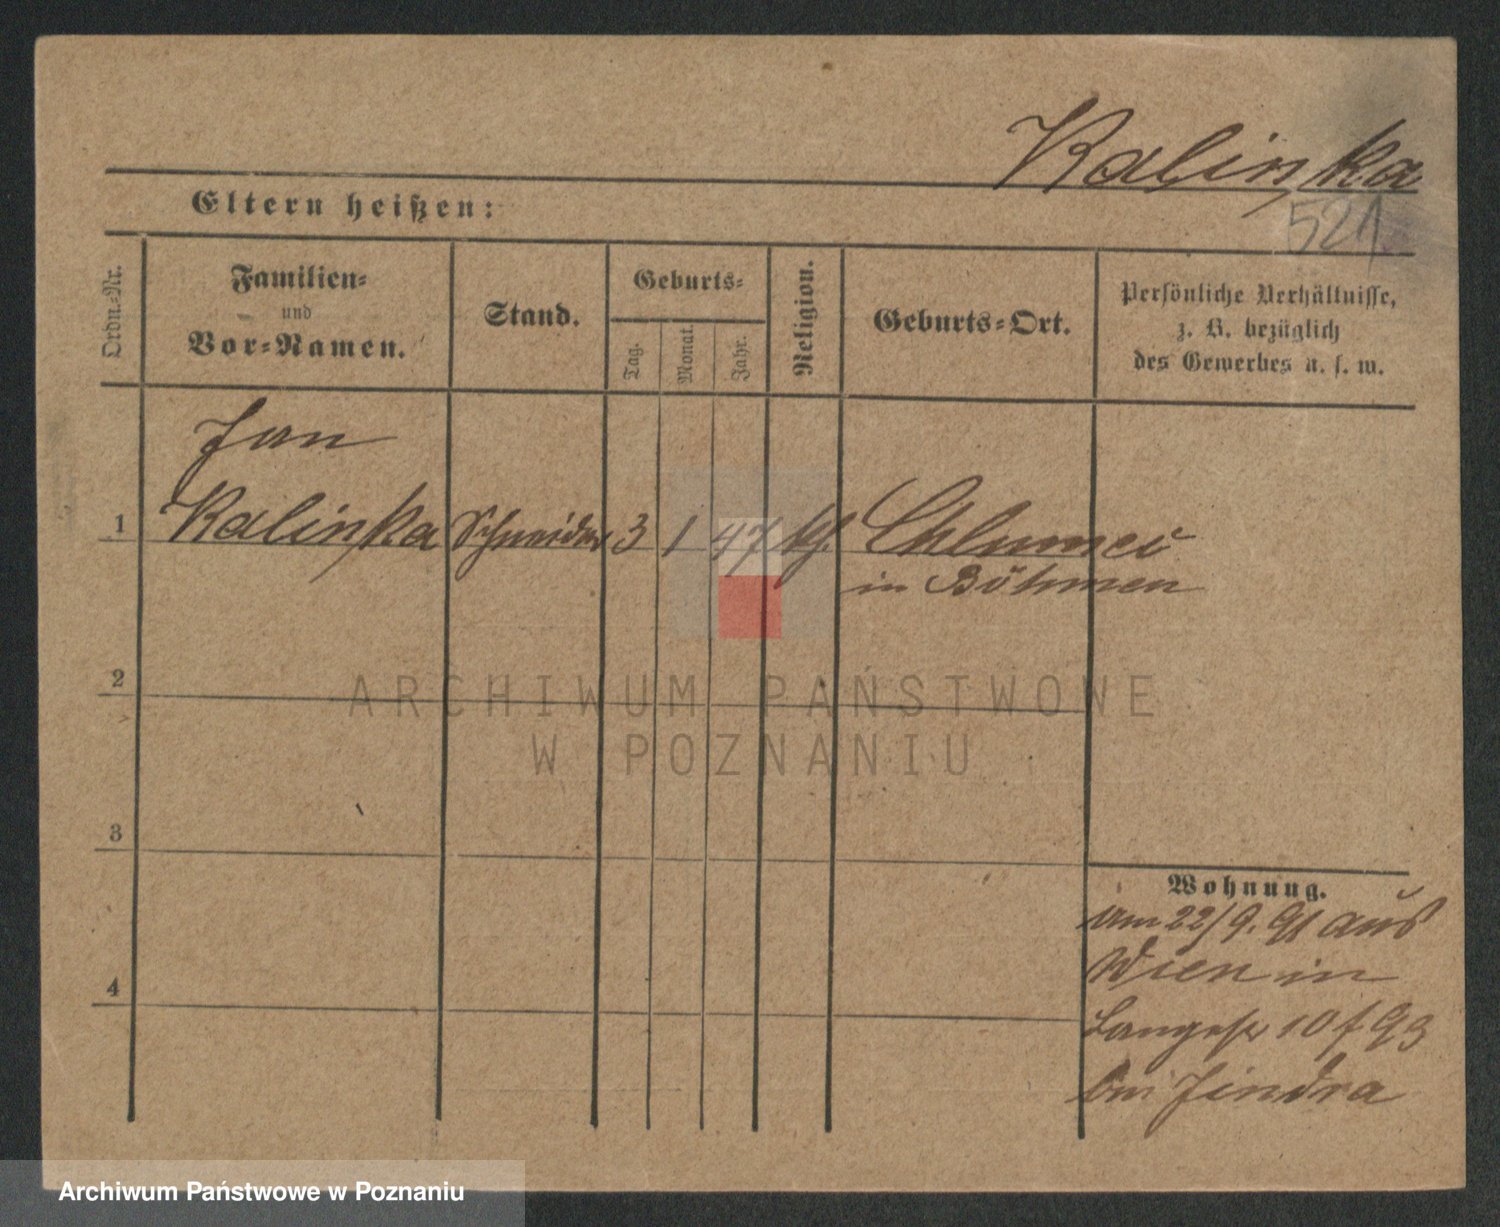 Kalinka
521.
Eltern heißen:
Ordn.=Nr.
Familien=
und
Vor=Namen.
Stand.
Geburts=
Tag.
Monat.
Jahr.
Religion.
Geburts=Ort.
Persönliche Verhältnisse,
z. B. bezüglich
des Gewerbes u. s. w.
Jan
1 Kalinka Schneider 3 1 47 kth. Chlumec
in Böhmen
2
ARCHIWUM PAŃSTWOWE
W POZNANIU
3
Wohnung.
am 22/9. 91 aus
Wien in
Langestr 10 f 93
bei Jindra
4
Archiwum Państwowe w Poznaniu